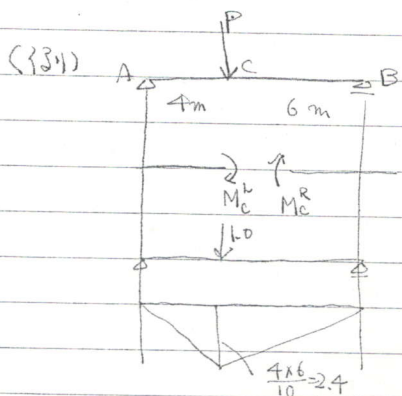 (例)
P
A C B
4m 6m
M_C^L M_C^R
1.0
4×6/10=2.4